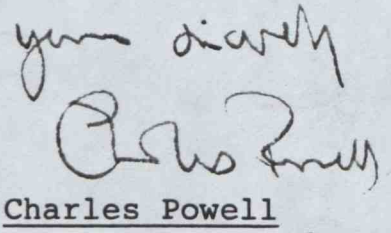 Yours sincerely
Charles Powell
Charles Powell